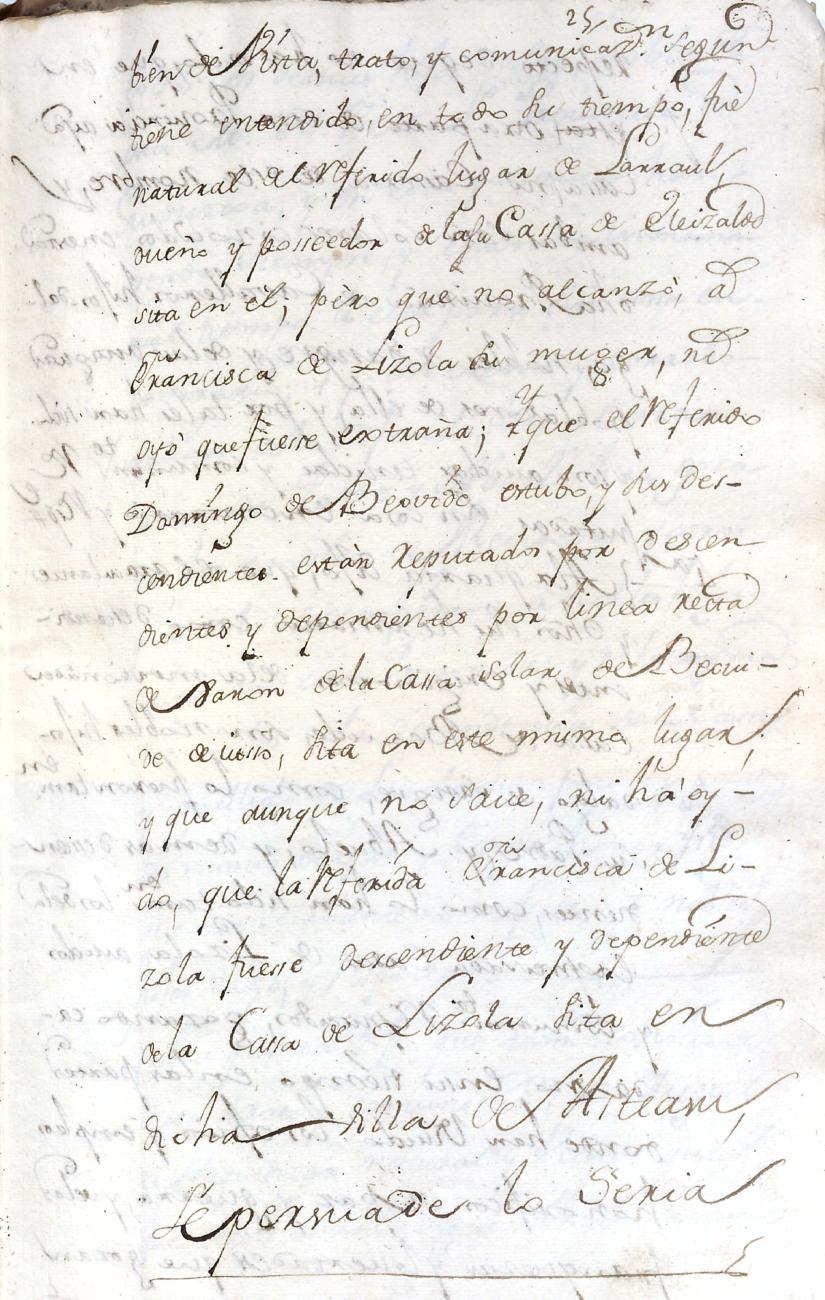 25
bién de Vista, trato, y comunicazn. segun
tiene entendido, en todo su tiempo, fué
natural del Referido lugar de Larraul,
dueño y posseedor dela su Cassa de Eleizalde
sita en él; pèro que no alcanzò, a
Francisca de Lizola su muger, ni
oyò que fuesse extraña; y que el Referido
8
Domingo de Beovide estubo, y sus des-
cendientes están Reputados por descen
dientes y dependientes por linea recta
de Varon dela Cassa solar de Beovi-
de de usso, sita en este mismo lugar,
y que aunque no save, ni hà oy-
do, que la Referida Francisca de Li-
zola fuesse descendiente y dependiente
dela Cassa de Lizola sita en
dicha Villa de Asteasu,
Se persuade lo Seria